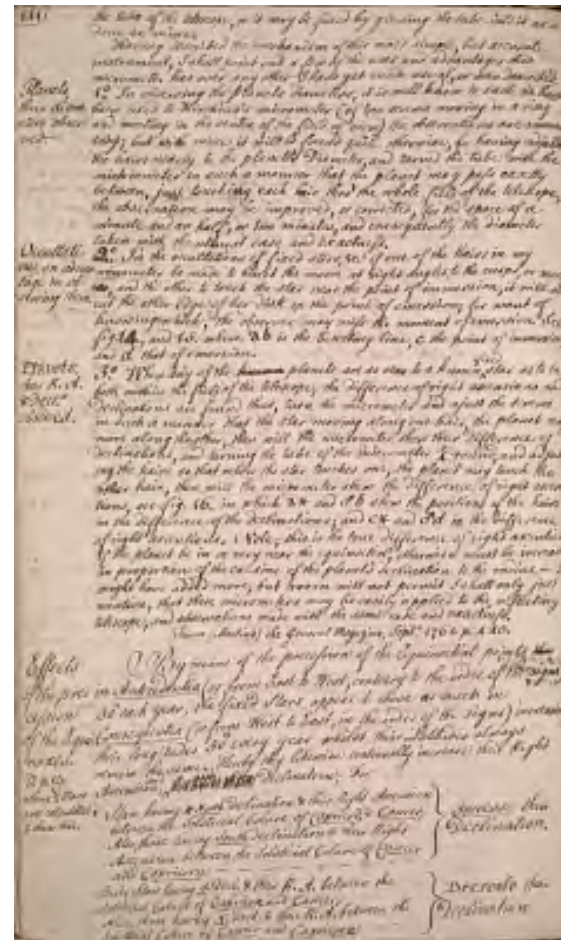 the tube of the telescope, or it may be fixed by
Having described the mechanism of this most simple, but accurate
instrument, I shall point out a few of the uses and advantages that
micrometer has over any other
Planets, 1.° In measuring the planets diameters, it is well known to such as have
their diam-
eters obser-
ved.
been used to micrometer (of two moving in a ring
and meeting in the centre of the field of view) the observations are
but with mine it will be found quite otherwise, for having
the hairs nearly to the planet's Diameter, and turned the tube with the
micrometer in such a manner that the planet may pass exactly
between, just touching each hair thro' the whole field of the telescope,
the observation may be improved, or corrected, for the space of a
minute and an half, or two minutes, and consequently the diameter
taken with the utmost ease and exactness.
Occultati-
ons
2.° In the occultations of fixed stars, &c. if one of the hairs in my
micrometer be made to the moon at right angles to the cusps,
and the other to touch the star near the point of immersion, it will
cut the other edge of her disk in the point of emersion; for want of
knowing which, the observer may miss the moment of emersion. See
fig. and 15. where ab is the line, c the point of immersion
and d that of emersion.
Planets,
their R. A.
& Decl.n
found.
3.° When any of the planets are so near to a known fixed star as to be
both within the field of the telescope, the difference of right ascension and
declinations are found thus, turn the micrometer and adjust the screw
in such a manner that the star moving along one hair, the planet may
move along the other, then will the micrometer shew their difference of
declinations, and turning the tube of the micrometer ¼ round, and adjust-
ing the hairs so that when the star touches one, the planet may touch the
other hair, then will the micrometer shew the difference of right ascen-
tions, see fig. 16. in which and shew the positions of the hairs
in the difference of the declinations; and and in the difference
of right ascentions. Note, this is the true difference of right ascention
if the planet be in or very near the equinoctial, otherwise must be increased
in proportion of the cosine of the planet's declination to the radius — I
might have added more, but room will not permit. I shall only just
mention, that these micrometers may be easily applied to the reflecting
telescope, and observations made with the same ease and exactness.
From (Martin's) the General Magazine, Sept.r 1760 p.
Effects
of the prec-
cession
of the Equi-
noctial
By means of the precession of the Equinoctial points
in Antecedentia (or from East to West, contrary to the order of the signs)
50" each year, the fixed Stars appear to move as much in
Consequentia (or from West to East, in the order of the signs) increasing
their longitudes 50" every year whilst their Latitudes always
remain the same. Hereby they likewise continually increase their Right
Ascension, Declinations; for
Stars having North declination & their Right Ascension
between the Solstitial Colure of Capricorn & Cancer
Also, those having South declination & their Right
Ascension between the Solstitial Colure of Cancer
and Capricorn
Increase their
Declination.
But Stars having S. Decl. & their R. A. between the
Solstitial Colure of Capricorn and Cancer
Also, those having N. Decl. & their R. A. between the
Solstitial Colure of Cancer and Capricorn
Decrease their
Declination